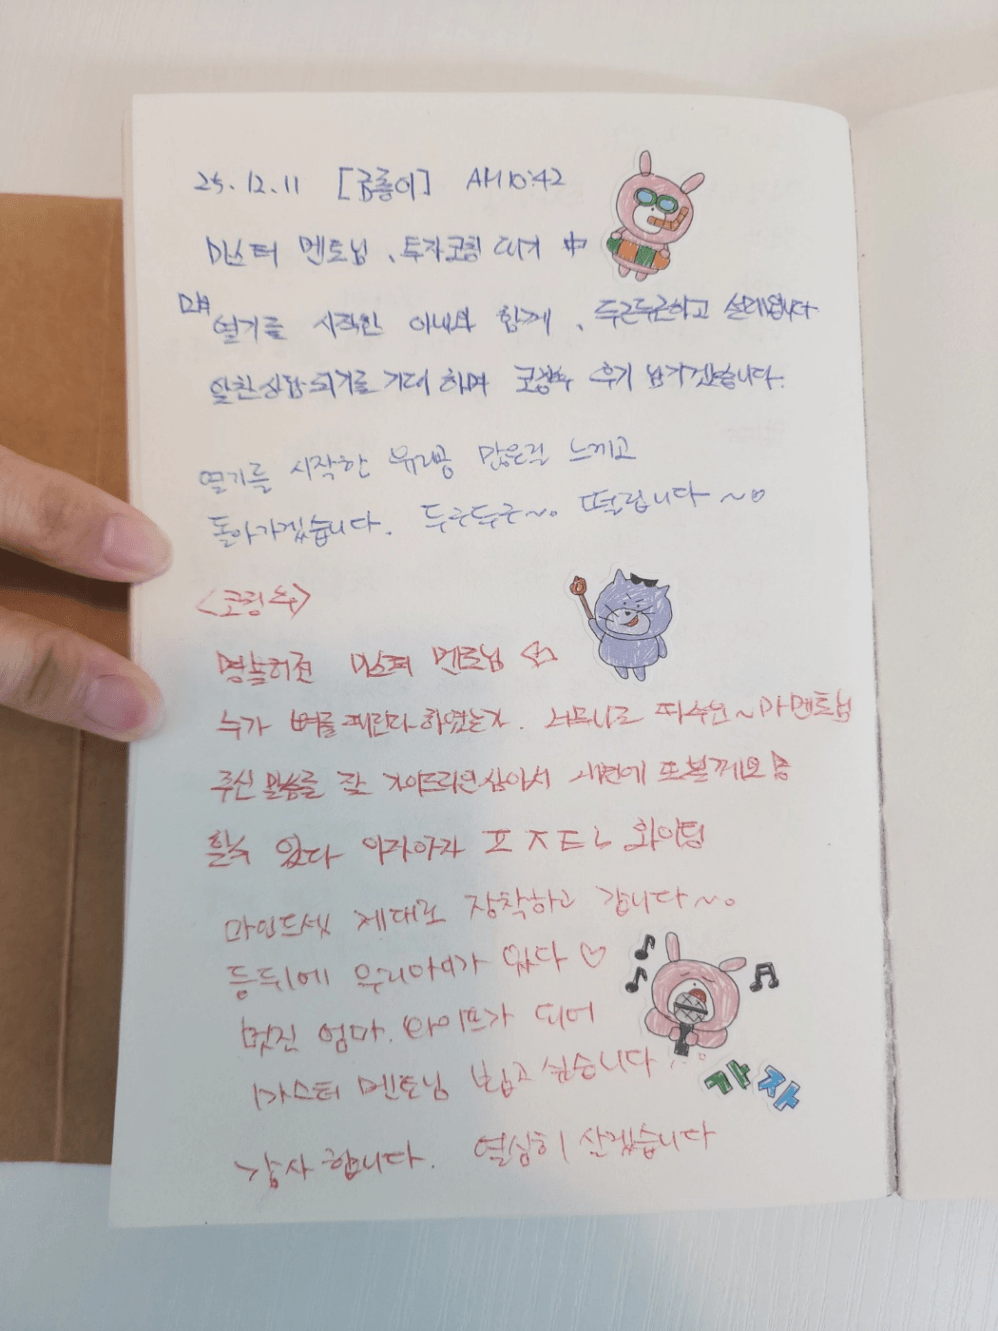 25.12.11 [곰돌이] AM10:42
마스터 멘토님, 투자코칭 대기 中
열기를 시작한 아내와 함께, 두근두근하고 설레입니다
알찬 상담 되기를 기대하며 코칭후 후기 남기겠습니다.
열기를 시작한 유리공 많은걸 느끼고
돌아가겠습니다. 두근두근~。 떨립니다~♡
<코칭 후>
명불허전 마스터 멘토님
누가 벼를 때린다 하였는가. 너무나도 따수운~ 마멘토님
주신 말씀을 잘 가이드라인 삼아서
할 수 있다 아자아자 화이팅
마인드셋 제대로 장착하고 갑니다~。
등뒤에 우리아가가 있다 ♡
멋진 엄마. 와이프가 되어
마스터 멘토님 뵙고 싶습니다
가자
감사합니다. 열심히 살겠습니다